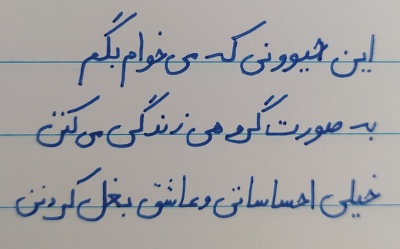 این حیوونی که می‌خوام بگم
به صورت گروهی زندگی می‌کنن
خیلی احساساتی و عاشق بغل کردنن